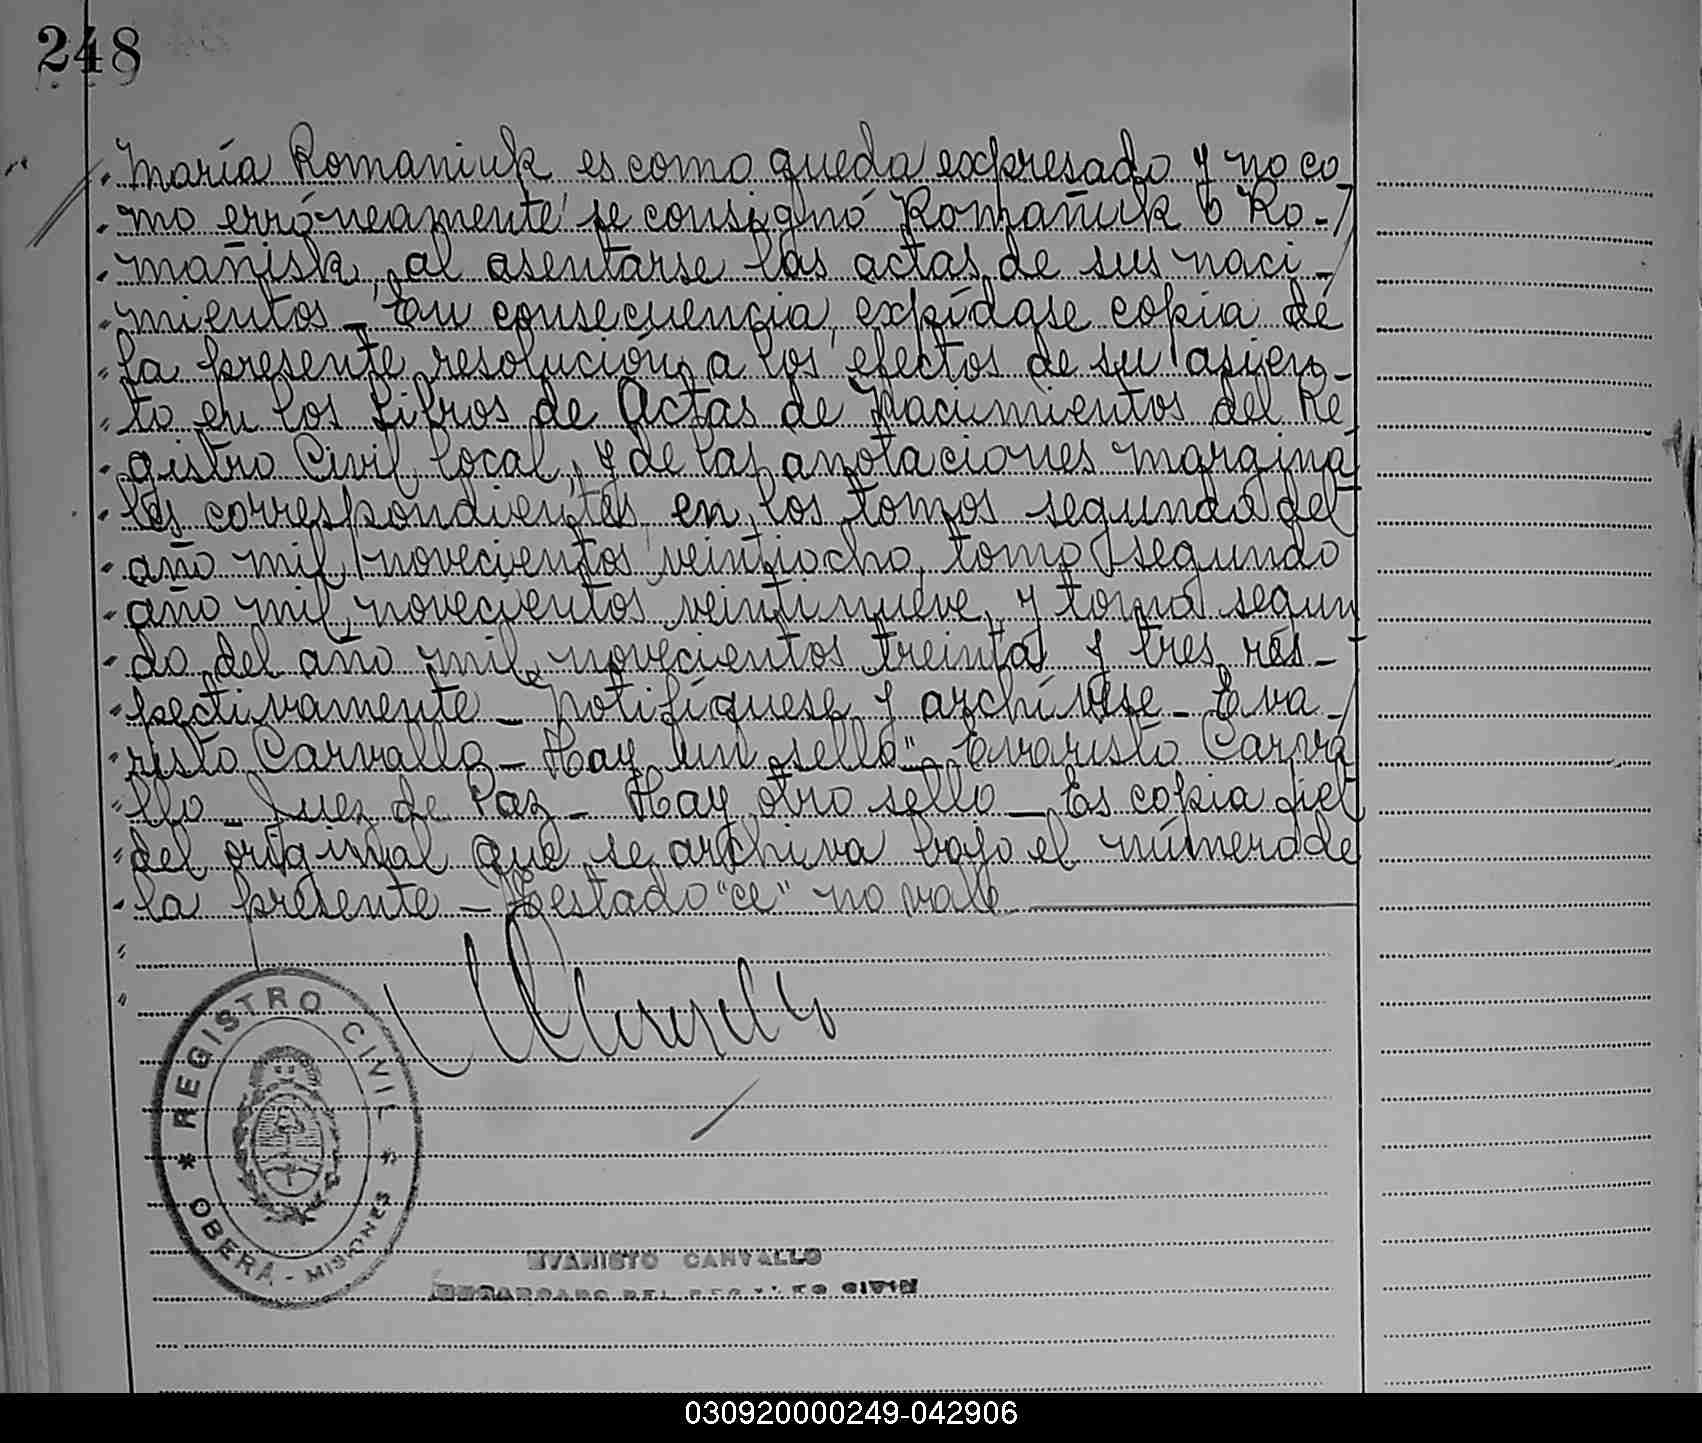 248
María Romaniuk es como queda expresado y no co
mo erróneamente se consignó Romañuk o Ro-
mañisk, al asentarse las actas de sus naci-
mientos_ En consecuencia, expídase copia de
la presente resolución a los efectos de su asien-
to en los Libros de Actas de Nacimientos del Re
gistro Civil local, y de las anotaciones margina
les correspondientes en los tomos segundo del
año mil novecientos veintiocho, tomo segundo
año mil novecientos veintinueve, y tomo segun
do del año mil novecientos treinta y tres res-
pectivamente_ Notifíquese y archívese_ Eva-
risto Carvallo_ Hay un sello" Evaristo Carva
llo_ Juez de Paz_ Hay otro sello_ Es copia fiel
del original que se archiva bajo el número de
la presente_ Testado "ce" no vale
REGISTRO CIVIL
* OBERÁ - MISIONES *
EVARISTO CARVALLO
ENCARGADO DEL REGISTRO CIVIL
030920000249-042906